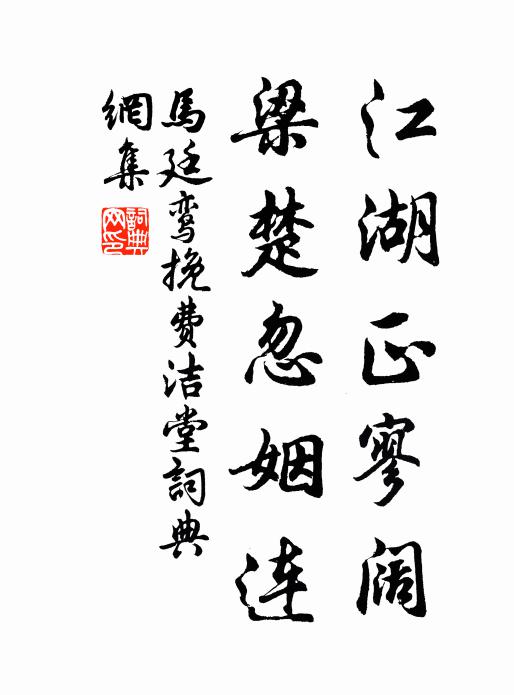 江湖正寥阔
梁楚忽姻连
馬廷鸾挽费洁堂詞典
網集
詞典网印